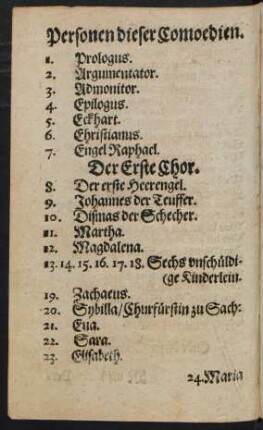 Personen dieser Comoedien.
1. Prologus.
2. Argumentator.
3. Admonitor.
4. Epilogus.
5. Eckhart.
6. Christianus.
7. Engel Raphael.
Der Erste Chor.
8. Der erste Heerengel.
9. Johannes der Teuffer.
10. Dismas der Schecher.
11. Martha.
12. Magdalena.
13. 14. 15. 16. 17. 18. Sechs vnschüldi-
(ge Kinderlein.
19. Zachaeus.
20. Sybilla/Churfürstin zu Sach-
21. Eua.
22. Sara.
23. Elisabeth.
24. Maria